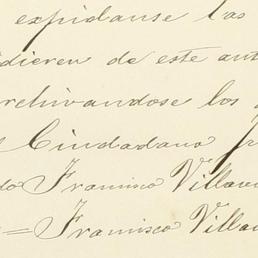 expidanse las
dieren de este aut
rchivandose los
Ciudadano
do Francisco Villave
= Francisco Villa